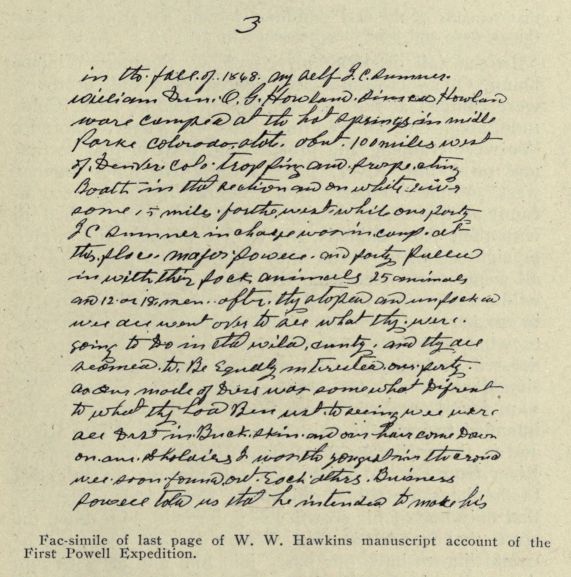 3
in the fall of 1868. my self J. C. Sumner.
William Dun. O. G. Howland. Howland
ware camped at the hot springs in midle
Parke colorado. abut. 100 miles west
of. Denver colo. trapping and. prospecting
Boath in that section and on white river
some. miles. farthe. west. while our party
J C Sumner in charge was in camp. at
this place. major Powell. and party Pulled
in with their pack animells 25 animals
and 12 or 18 men. after. thy stoped and unpacked
wee all went over to see what thy. were.
going to Do in that wild. cuntry. and thy all
seamed. to. Be Equelly intrested. our. party.
as our mode of Dress was somewhat Difrent
to what thy had Ben ust. to seeing. wee were
all Drest in Buck. skin. and our hair come Down
on. our. I was the yongest in the croud
wee. soon. found. out. Each. others. Buisness
Powell told us that he intended to make his
Fac-simile of last page of W. W. Hawkins manuscript account of the
First Powell Expedition.